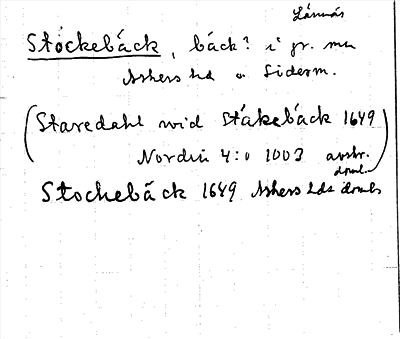 Lännäs
Stockebäck, bäck? i gr. mn
Askers hd o Söderm.
(Staredahl wid Ståkebäck 1649
Nordin 4:o 1003 avskr.
domb.)
Stockebäck 1649 Askers hds domb